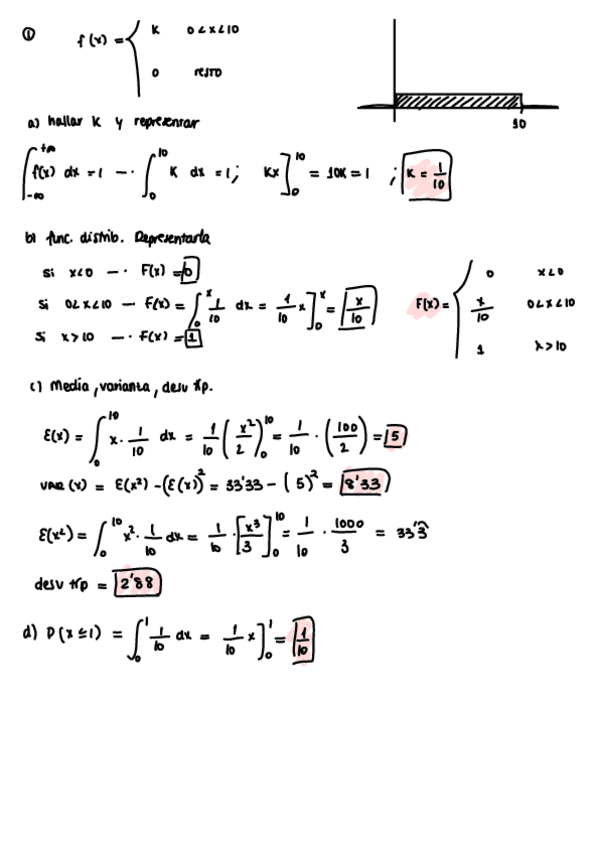 ① f(x) = { K 0<x<10
0 resto
10
a) hallar K y representar
∫_{-∞}^{+∞} f(x) dx = 1 → ∫_0^10 K dx = 1; Kx]_0^10 = 10K = 1 ; K = 1/10
b) func. distrib. Representarla
Si x<0 → F(x) = 0
Si 0<x<10 → F(x) = ∫_0^x 1/10 dx = 1/10 x]_0^x = x/10
Si x>10 → F(x) = 1
F(x) = { 0 x<0
x/10 0<x<10
1 x>10
c) Media, varianza, desv típ.
E(x) = ∫_0^10 x · 1/10 dx = 1/10 (x²/2)_0^10 = 1/10 · (100/2) = 5
VAR (x) = E(x²) - (E(x))² = 33'33 - (5)² = 8'33
E(x²) = ∫_0^10 x² · 1/10 dx = 1/10 · [x³/3]_0^10 = 1/10 · 1000/3 = 33'3̂
desv típ = 2'88
d) P(x≤1) = ∫_0^1 1/10 dx = 1/10 x]_0^1 = 1/10